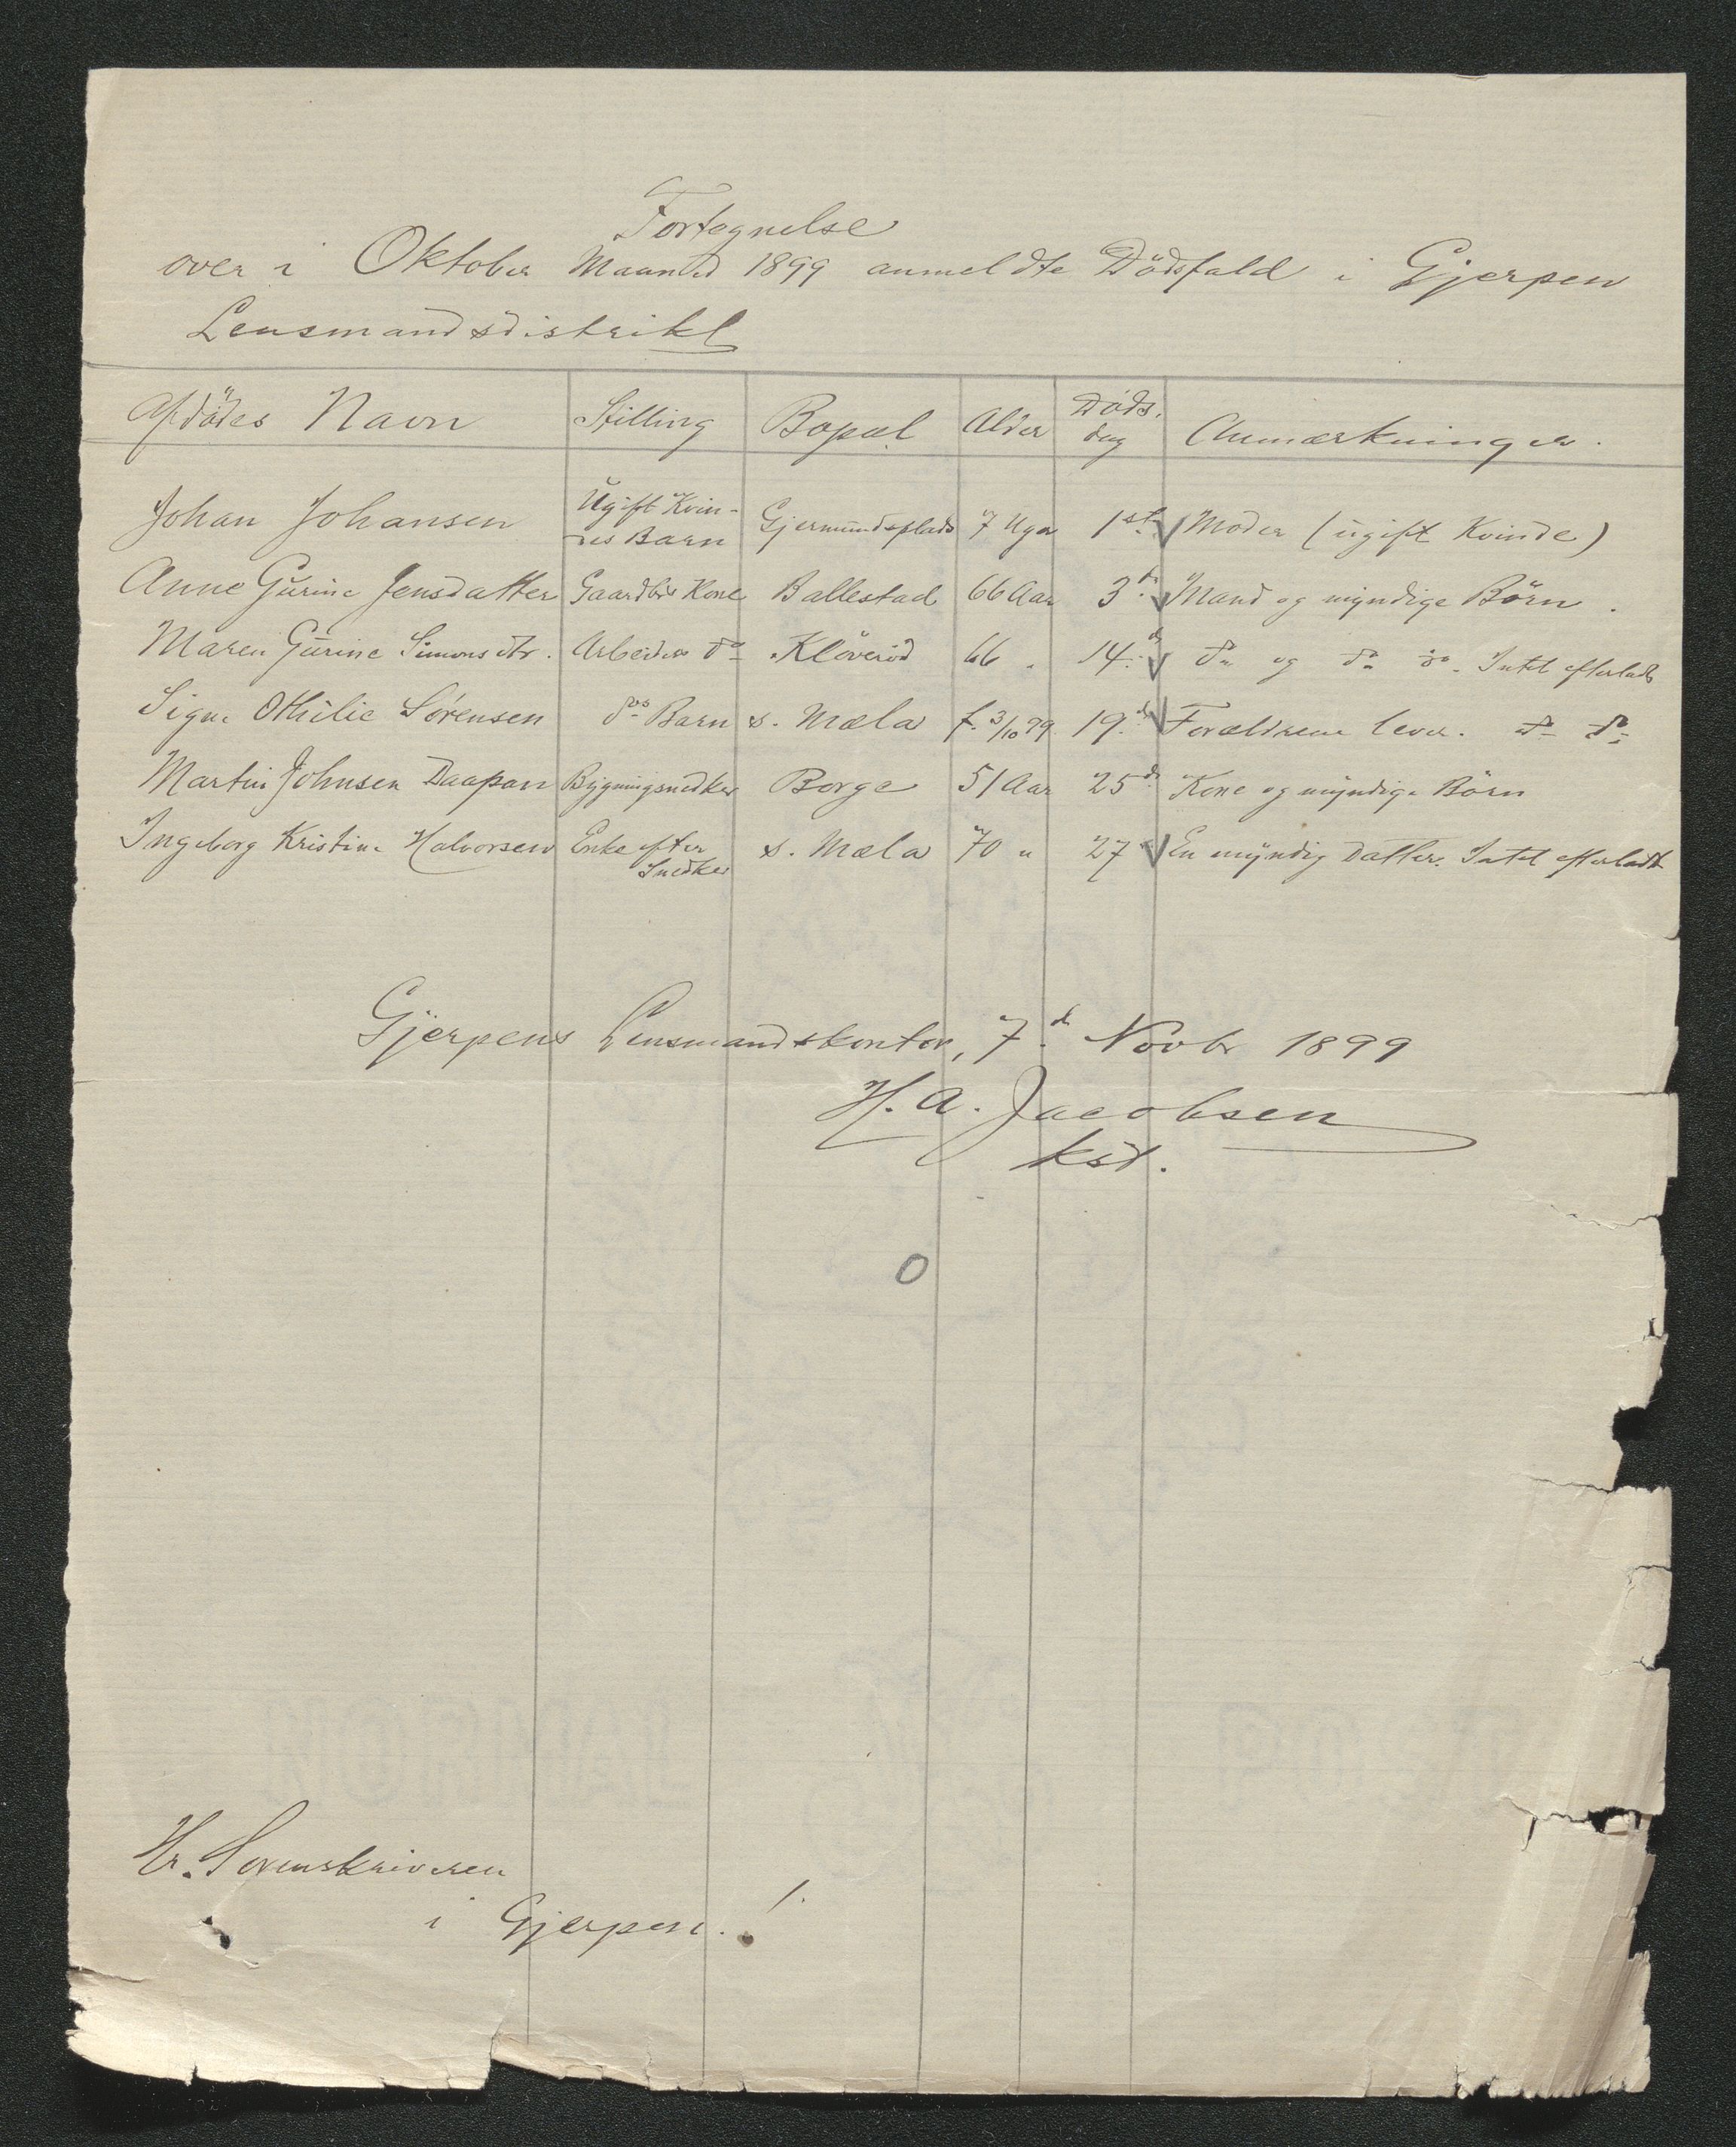 Fortegnelse
over i Oktober Maaned 1899 anmeldte Dödsfald i Gjerpen
Lensmandsdistrikt
Afdödes Navn Stilling Bopæl Alder Döds. dag Anmærkninger.
Johan Johansen Ugift Kvin- des Barn Gjermundsplads 7 Uger 1ste Moder (ugift Kvinde)
Anne Gurine Jensdatter Gaardbrs Kone Ballestad 66 Aar 3. Mand og myndige Börn.
Maren Gurine Simonsdtr. Arbeiders do Kløverød 66 " 14. do og do do. Intet efterladt
Signe Othilie Sørensen dos Barn s. Mæla f. 3/10 99 19. Forældrene lever. do do
Martin Johnsen Daapan Bygningsnedker Borge 51 Aar 25de Kone og myndige Börn
Ingeborg Kristine Halvorsen Enke efter Snedker s. Mæla 70 " 27 En myndig Datter. Intet efterladt
Gjerpens Lensmandskontor, 7de Novbr 1899
H. A. Jacobsen
kst.
0
Hr. Sorenskriveren
i Gjerpen. !